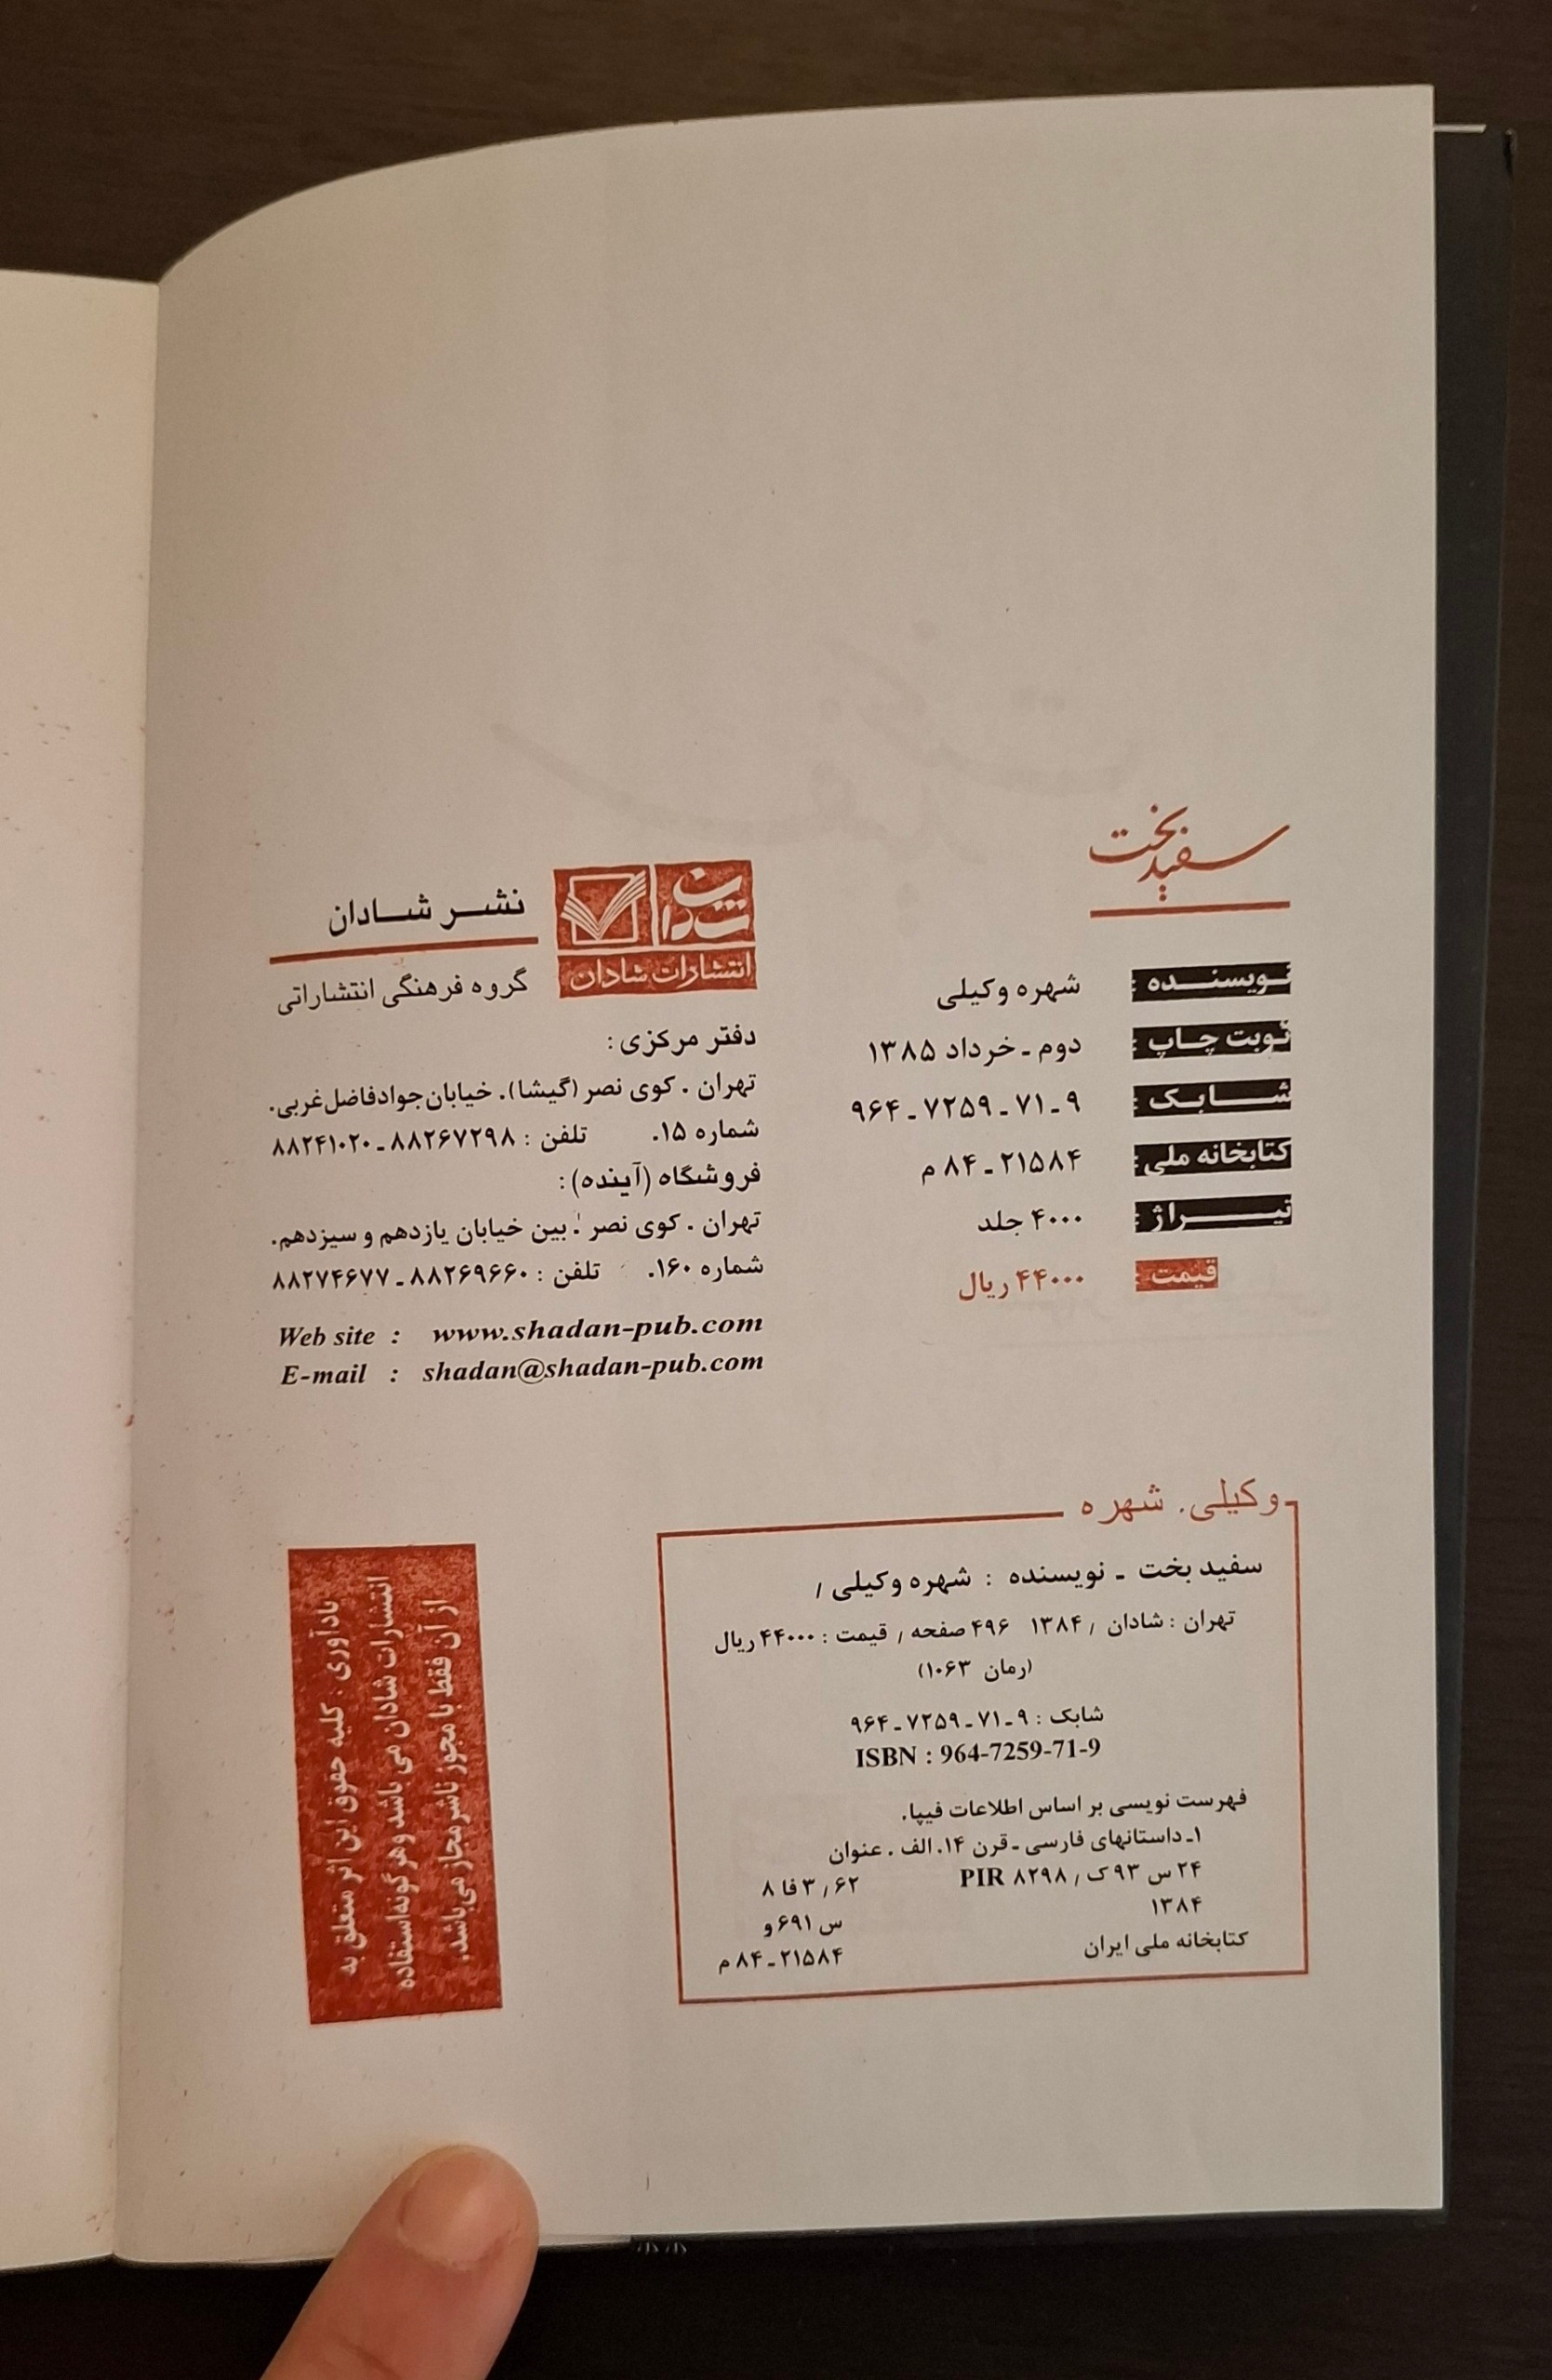 سفید بخت
نویسنده : شهره وکیلی
نوبت چاپ : دوم ـ خرداد ۱۳۸۵
شابک : ۹ ـ ۷۱ ـ ۷۲۵۹ ـ ۹۶۴
کتابخانه ملی : ۲۱۵۸۴ ـ ۸۴ م
تیراژ : ۴۰۰۰ جلد
قیمت : ۴۴۰۰۰ ریال
شادان
انتشارات شادان
نشر شادان
گروه فرهنگی انتشاراتی
دفتر مرکزی :
تهران . کوی نصر (گیشا). خیابان جواد فاضل غربی.
شماره ۱۵. تلفن : ۸۸۲۶۷۲۹۸ ـ ۸۸۲۴۱۰۲۰
فروشگاه (آینده) :
تهران . کوی نصر . بین خیابان یازدهم و سیزدهم.
شماره ۱۶۰. تلفن : ۸۸۲۶۹۶۶۰ ـ ۸۸۲۷۴۶۷۷
Web site : www.shadan-pub.com
E-mail : shadan@shadan-pub.com
وکیلی . شهره
سفید بخت ـ نویسنده : شهره وکیلی /
تهران : شادان / ۱۳۸۴ ۴۹۶ صفحه / قیمت : ۴۴۰۰۰ ریال
(رمان ۱۰۶۳)
شابک : ۹ ـ ۷۱ ـ ۷۲۵۹ ـ ۹۶۴
ISBN : 964-7259-71-9
فهرست نویسی بر اساس اطلاعات فیپا.
۱ـ داستانهای فارسی ـ قرن ۱۴. الف . عنوان
۲۴ س ۹۳ ک / ۸۲۹۸ PIR ۶۲ / ۳ فا ۸
۱۳۸۴ س ۶۹۱ و
کتابخانه ملی ایران ۲۱۵۸۴ ـ ۸۴ م
یادآوری : کلیه حقوق این اثر متعلق به
انتشارات شادان می باشد و هرگونه استفاده
از آن فقط با مجوز ناشر مجاز می باشد.